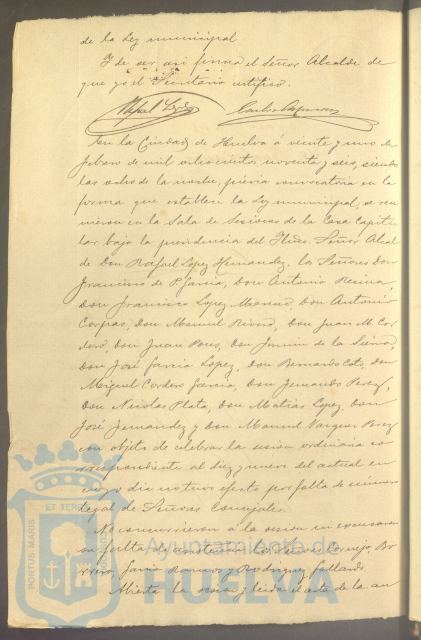 de la Ley municipal
Y de ser asi firma el Señor Alcalde de
que yo el Secretario certifico.
Rafael Lopez Carlos
En la Ciudad de Huelva á veinte y uno de
febrero de mil ochocientos noventa y seis, siendo
las ocho de la noche, previa convocatoria en la
forma que establece la Ley municipal, se reu
nieron en la Sala de Sesiones de la Casa Capitu
lar bajo la presidencia del Iltmo. Señor Alcal
de Don Rafael Lopez Hernandez, los Señores Don
Francisco de P. Garcia, Don Antonio Reina,
Don Francisco Lopez Moreno, Don Antonio
Corpas, Don Manuel Rivero, Don Juan M. Cor
dero, Don Juan Pons, Don Joaquin de la Sierra,
Don José Garcia Lopez, Don Bernardo Coto, Don
Miguel Cordero Garcia, Don Fernando Perez,
Don Nicolas Plata, Don Matias Lopez, Don
José Fernandez y Don Manuel Vazquez Perez
con objeto de celebrar la sesion ordinaria co
rrespondiente al diez y nueve del actual en
cuyo dia no tuvo efecto por falta de número
legal de Señores Concejales.
No concurrieron á la sesion sin excusar
su falta de asistencia los Señores Cornejo, Bo
rrero, Garcia Ramos y Rodriguez
Abierta la sesion y leida el acta de la an
PORTUS MARIS ET TERRÆ
Ayuntamiento de
HUELVA